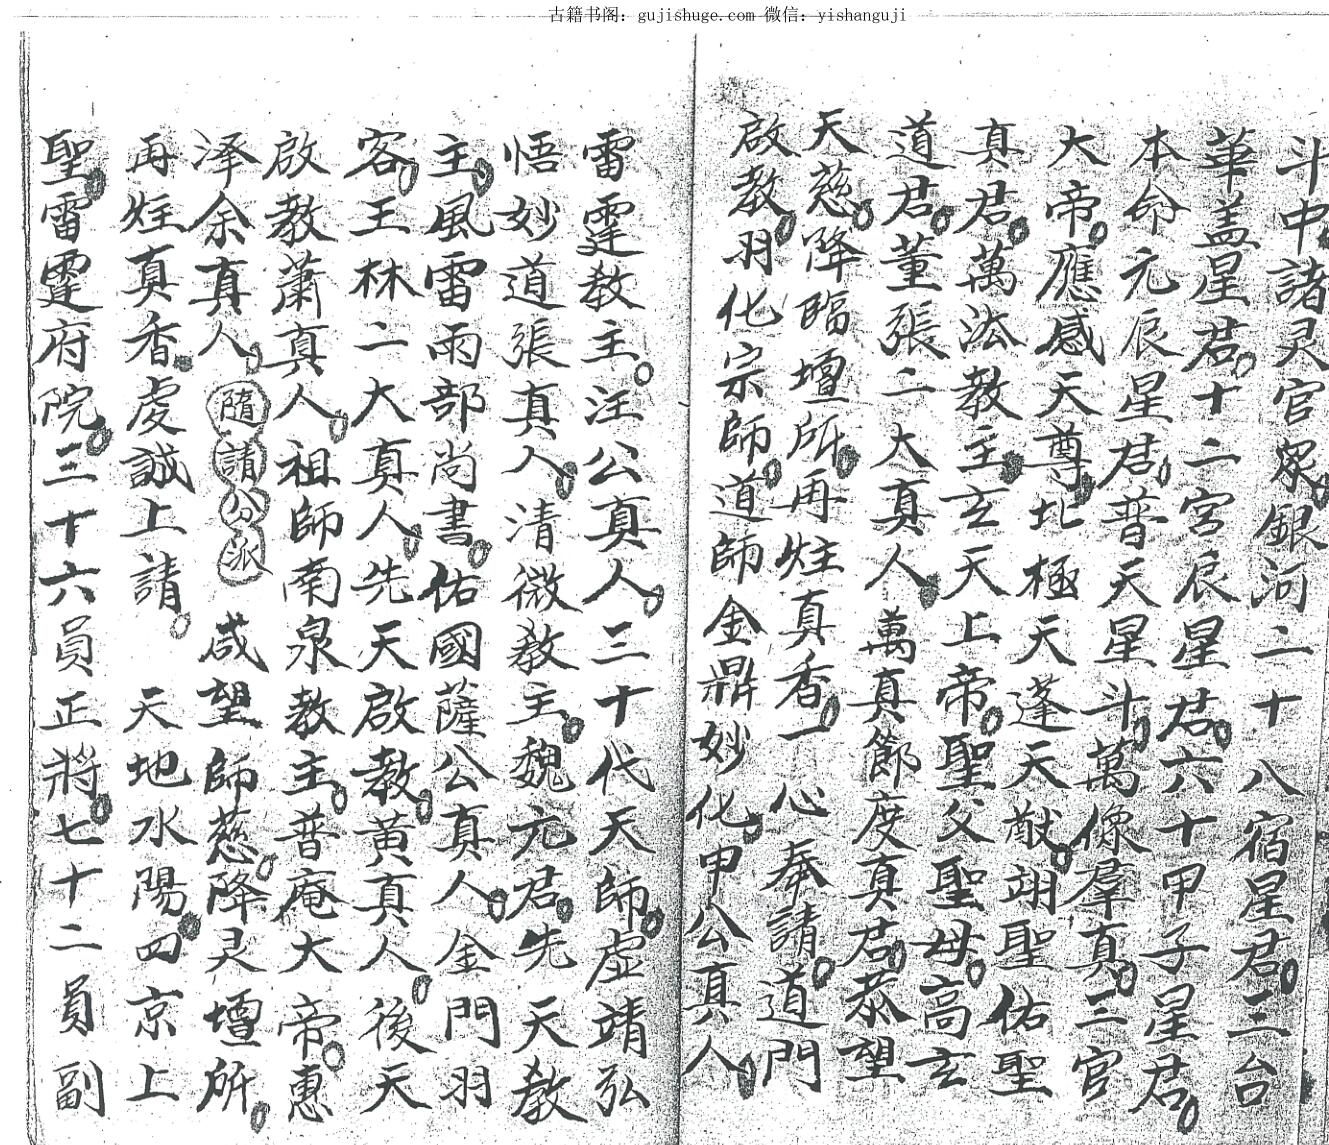 古籍书阁：gujishuge.com 微信：yishanguji
斗中諸灵官眾銀河二十八宿星君三台
華盖星君十二宮辰星君六十甲子星君
本命元辰星君普天星斗萬像羣真三官
大帝應感天尊北極天蓬天猷翊聖佑聖
真君萬法教主玄天上帝聖父聖母高玄
道君董張二大真人萬真節度真君恭望
天慈降臨壇所再炷真香一心奉請道門
啟教羽化宗師道師金鼎妙化甲公真人
雷霆教主汪公真人三十代天師虛靖弘
悟妙道張真人清微教主魏元君先天教
主風雷雨部尚書佑國薩公真人金門羽
客王林二大真人先天啟教黃真人後天
啟教蕭真人祖師南泉教主普庵大帝惠
泽余真人隨請公派咸望師慈降灵壇所
再炷真香虔誠上請天地水陽四京上
聖雷霆府院三十六員正將七十二員副